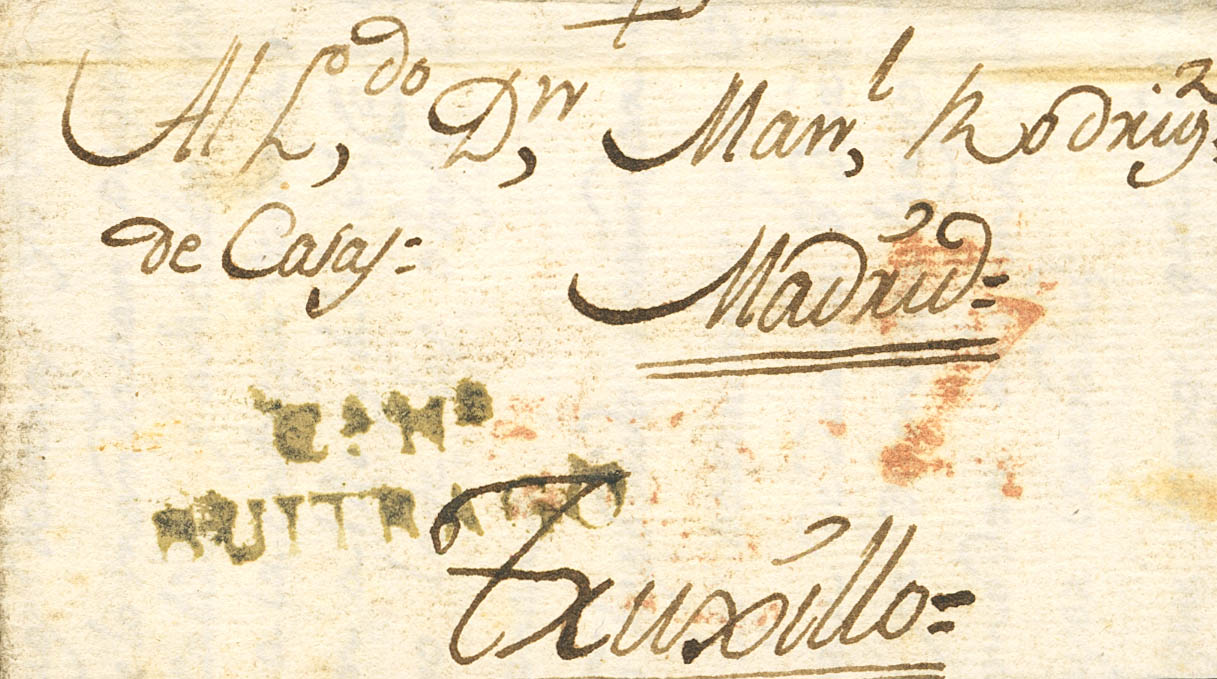 Al L,do Dn, Man,l Rodrig,z
de Casas=
Madrid=
C.N
BUITRAGO
Truxillo=